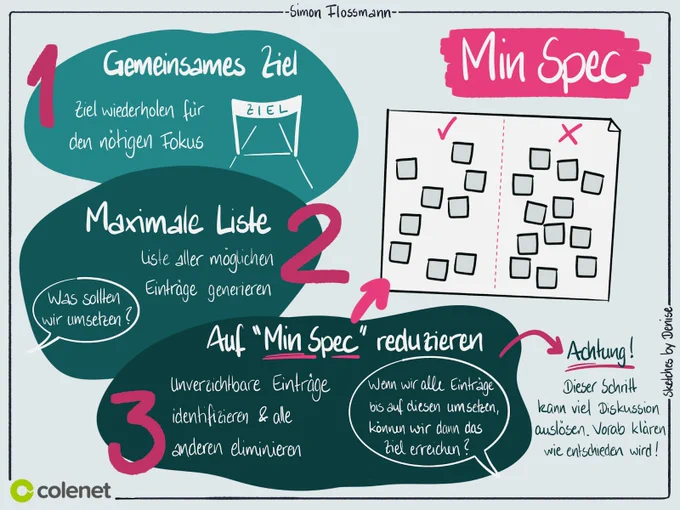 -Simon Flossmann-
Min Spec
1
Gemeinsames Ziel
Ziel wiederholen für
den nötigen Fokus
ZIEL
Maximale Liste
2
Liste aller möglichen
Einträge generieren
Was sollten
wir umsetzen?
3
Auf "Min Spec" reduzieren
Unverzichtbare Einträge
identifizieren & alle
anderen eliminieren
Wenn wir alle Einträge
bis auf diesen umsetzen,
können wir dann das
Ziel erreichen?
Achtung!
Dieser Schritt
kann viel Diskussion
auslösen. Vorab klären
wie entschieden wird!
Sketchnis by Denise
colenet